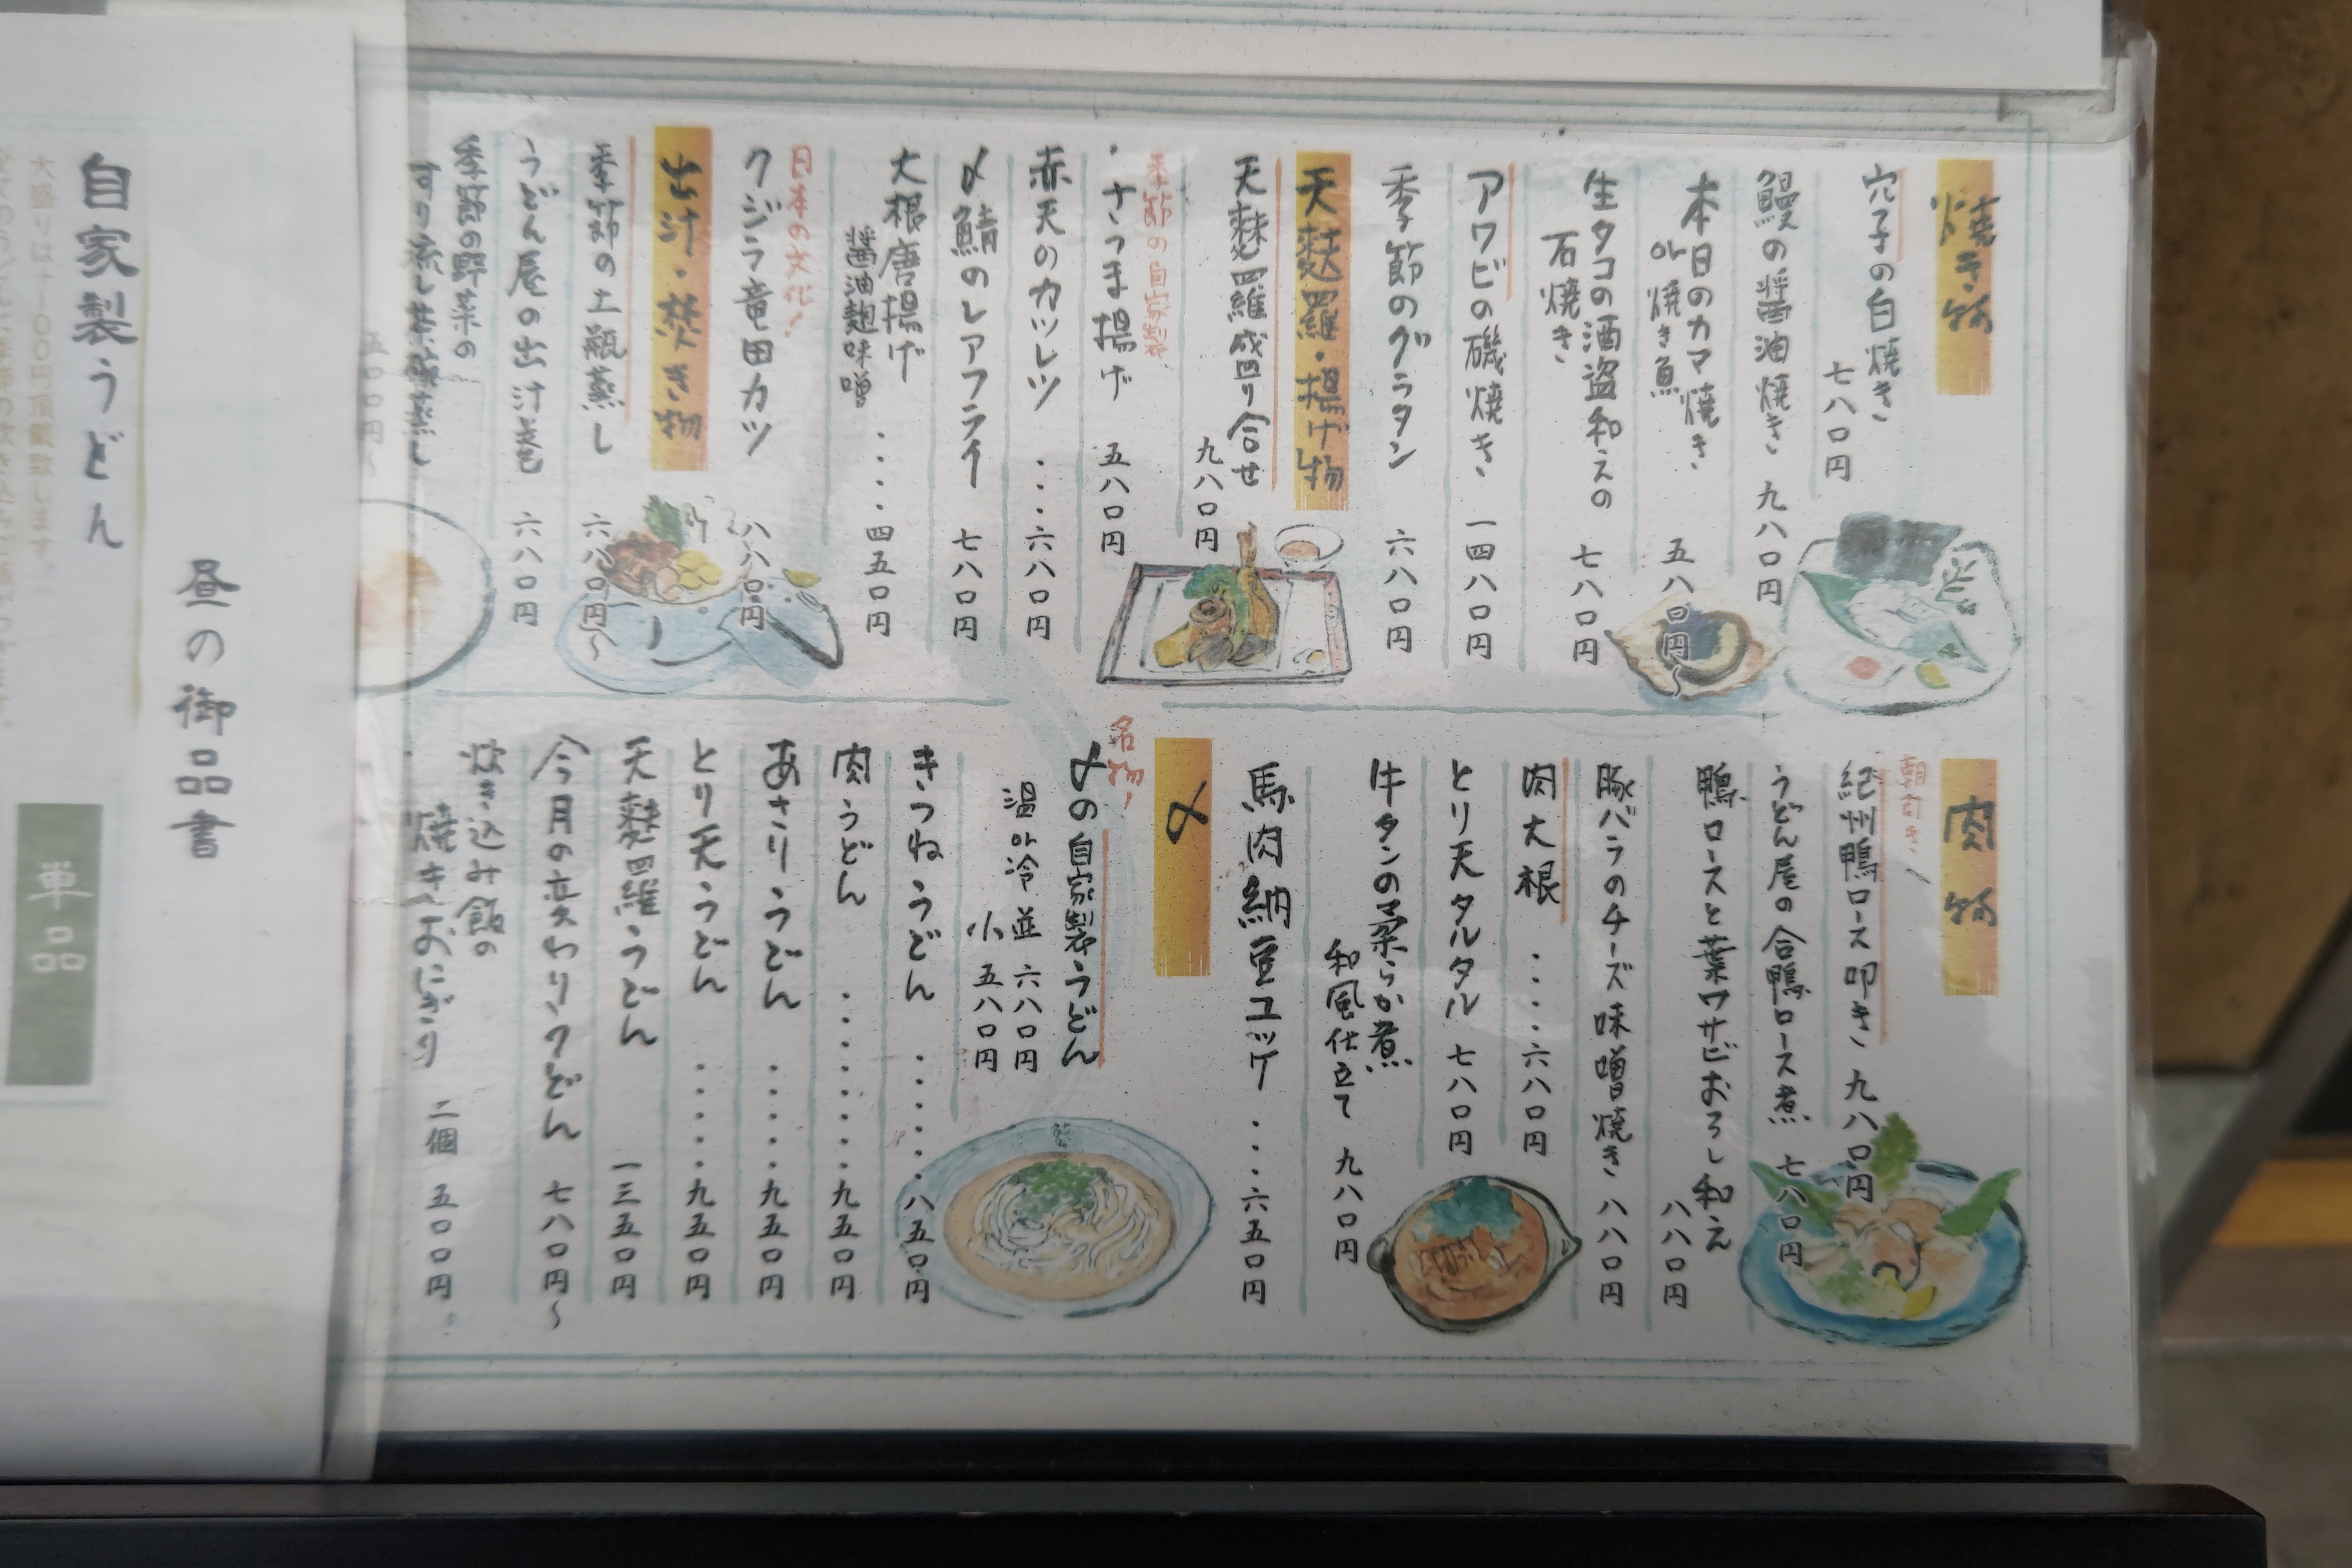 焼き物
穴子の白焼き
七八〇円
鰻の醤油焼き 九八〇円
本日のカマ焼き
or焼き魚
五八〇円〜
生タコの酒盗和えの
石焼き
七八〇円
アワビの磯焼き 一四八〇円
季節のグラタン 六八〇円
天麩羅・揚げ物
天麩羅盛り合せ
九八〇円
季節の自家製
・さつま揚げ 五八〇円
赤天のカツレツ ・・・六八〇円
〆鯖のレアフライ 七八〇円
大根唐揚げ
醤油麹味噌 ・・・・四五〇円
日本の文化!
クジラ竜田カツ 八八〇円
出汁・焚き物
季節の土瓶蒸し 六八〇円〜
うどん屋の出汁巻 六八〇円
季節の野菜の
すり流し茶碗蒸し
五〇〇円〜
肉物
朝引き!
紀州鴨ロース叩き 九八〇円
うどん屋の合鴨ロース煮 七八〇円
鴨ロースと葉ワサビおろし和え
八八〇円
豚バラのチーズ味噌焼き 八八〇円
肉大根 ・・・・六八〇円
とり天タルタル 七八〇円
牛タンの柔らか煮
和風仕立て 九八〇円
馬肉納豆ユッケ ・・・六五〇円
〆
名物!
〆の自家製うどん
温or冷 並 六八〇円
小 五八〇円
きつねうどん ・・・・・八五〇円
肉うどん ・・・・・・・九五〇円
あさりうどん ・・・・・九五〇円
とり天うどん ・・・・・九五〇円
天麩羅うどん 一三五〇円
今月の変わりうどん 七八〇円〜
炊き込み飯の
焼きおにぎり 二個 五〇〇円
昼の御品書
自家製うどん
単品